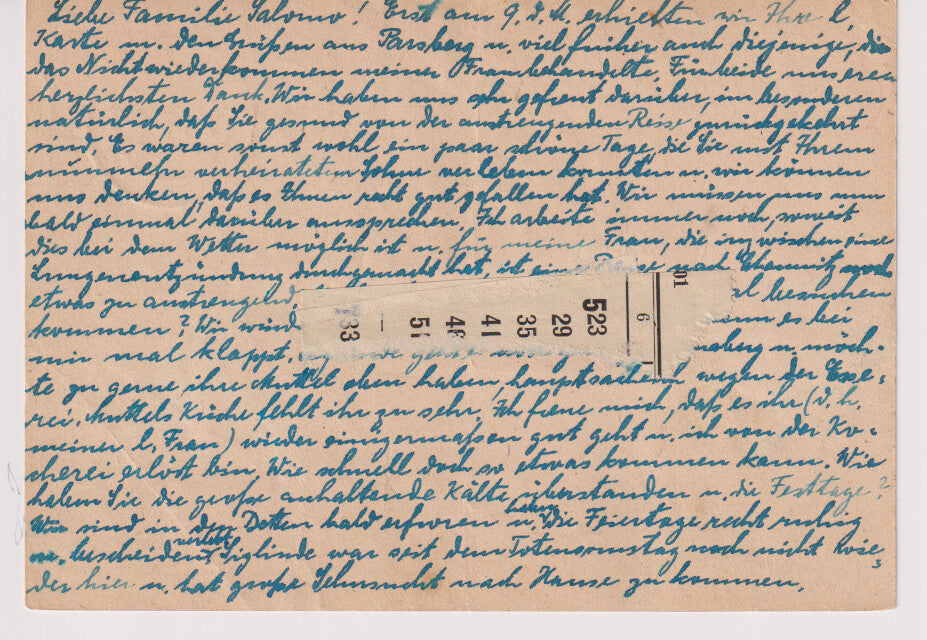 Liebe Familie Salomo! Erst am 9. d. M. erhielten wir Ihre l.
Karte u. den Grüßen aus Parsberg u. viel früher auch diejenige, die
das Nichtwiederkommen meiner Frau behandelte. Für beide unseren
herzlichsten Dank. Wir haben uns sehr gefreut darüber, im besonderen
natürlich, daß Sie gesund von der anstrengenden Reise zurückgekehrt
sind. Es waren sonst wohl ein paar schöne Tage, die Sie mit Ihrem
nunmehr verheirateten Sohne verleben konnten u. wir können
uns denken, daß es Ihnen recht gut gefallen hat. Wir müssen uns nun
bald einmal darüber aussprechen. Ich arbeite immer noch, soweit
dies bei dem Wetter möglich ist u. für meine Frau, die inzwischen eine
Lungenentzündung durchgemacht hat, ist eine Reise nach Chemnitz noch
etwas zu anstrengend. besuchen
kommen? Wir es bei
mir mal klappt. u. möch-
te zu gerne ihre Muttel oben haben, hauptsächlich wegen der Esse-
rei. Muttels Küche fehlt ihr zu sehr. Ich freue mich, daß es ihr (d. h.
meiner l. Frau) wieder einigermaßen gut geht u. ich von der Ko-
cherei erlöst bin. Wie schnell doch so etwas kommen kann. Wie
haben Sie die große anhaltende Kälte überstanden u. die Festtage?
Wir sind in den Betten bald erfroren u. haben die Feiertage recht ruhig
u. bescheiden verlebt. Siglinde war seit dem Totensonntag noch nicht wie-
der hier u. hat große Sehnsucht nach Hause zu kommen.
01
6
523
29
35
41
46
51
733